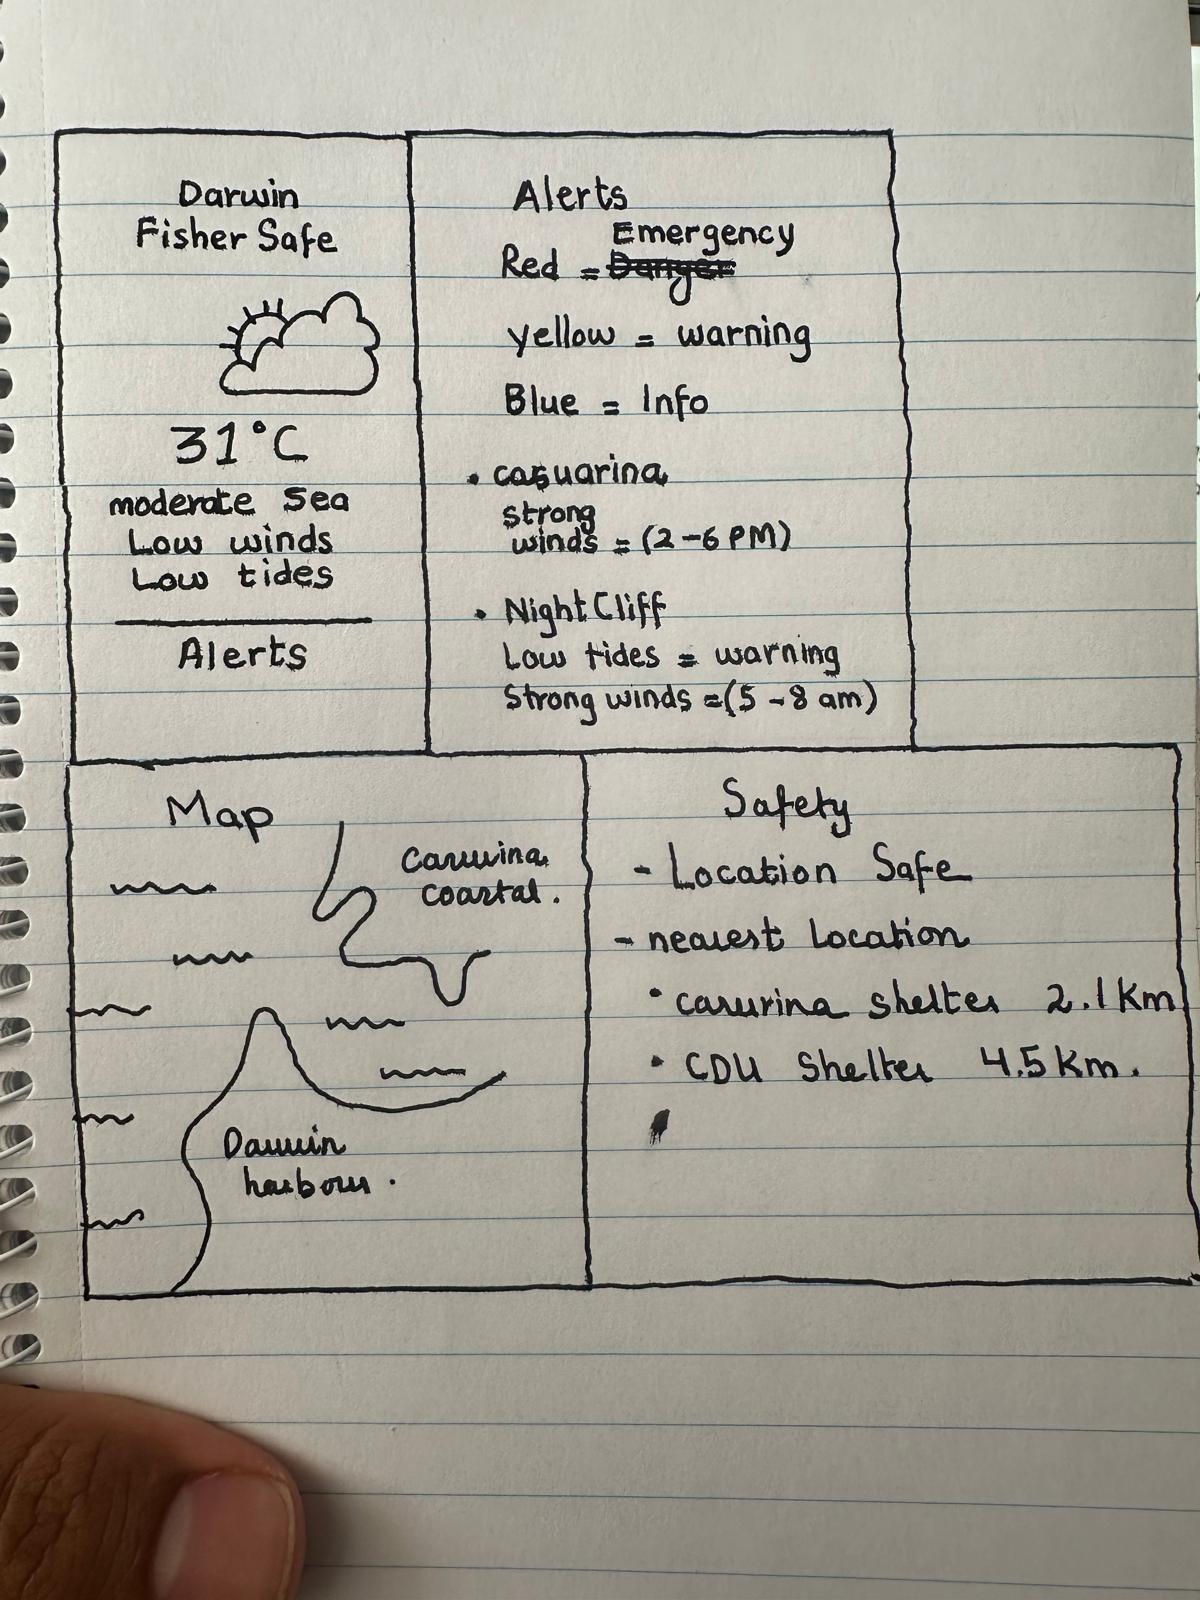 Darwin
Fisher Safe
31°C
moderate Sea
Low winds
Low tides
Alerts
Alerts
Emergency
Red = Danger
yellow = warning
Blue = Info
• casuarina
strong
winds = (2-6 PM)
• Night Cliff
Low tides = warning
Strong winds = (5-8 am)
Map
Caruurina
coastal.
Darwin
harbour.
Safety
- Location Safe
- nearest Location
• carurina shelter 2.1 Km
• CDU Shelter 4.5 Km.